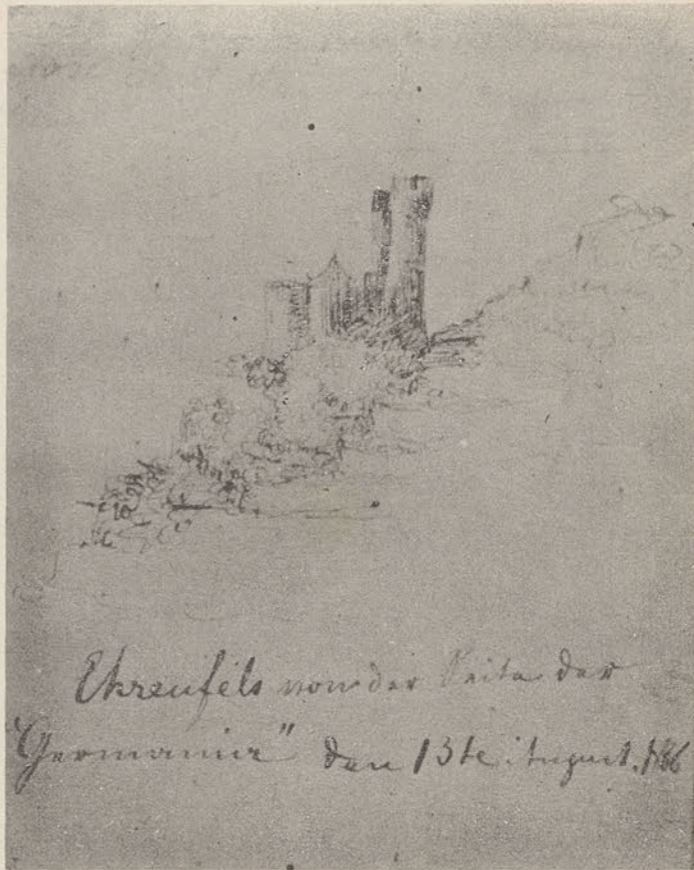 Ehrenfels von der Seite der
"Germania" den 13te August. 1886